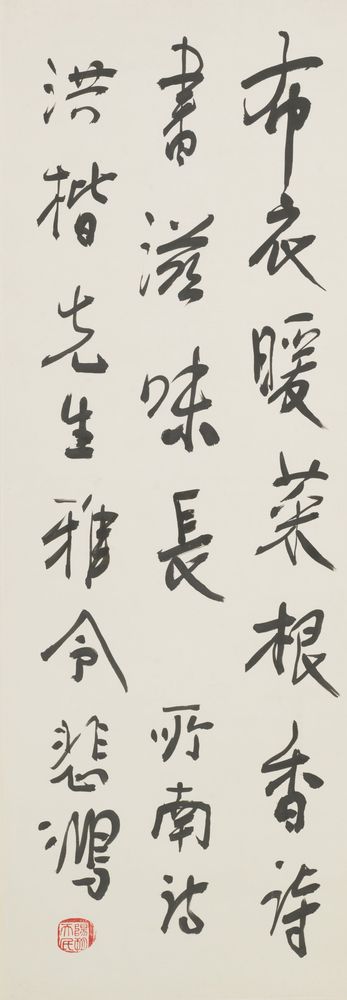 布衣暖菜根香詩
書滋味長 所南詩
洪楷先生雅令 悲鴻